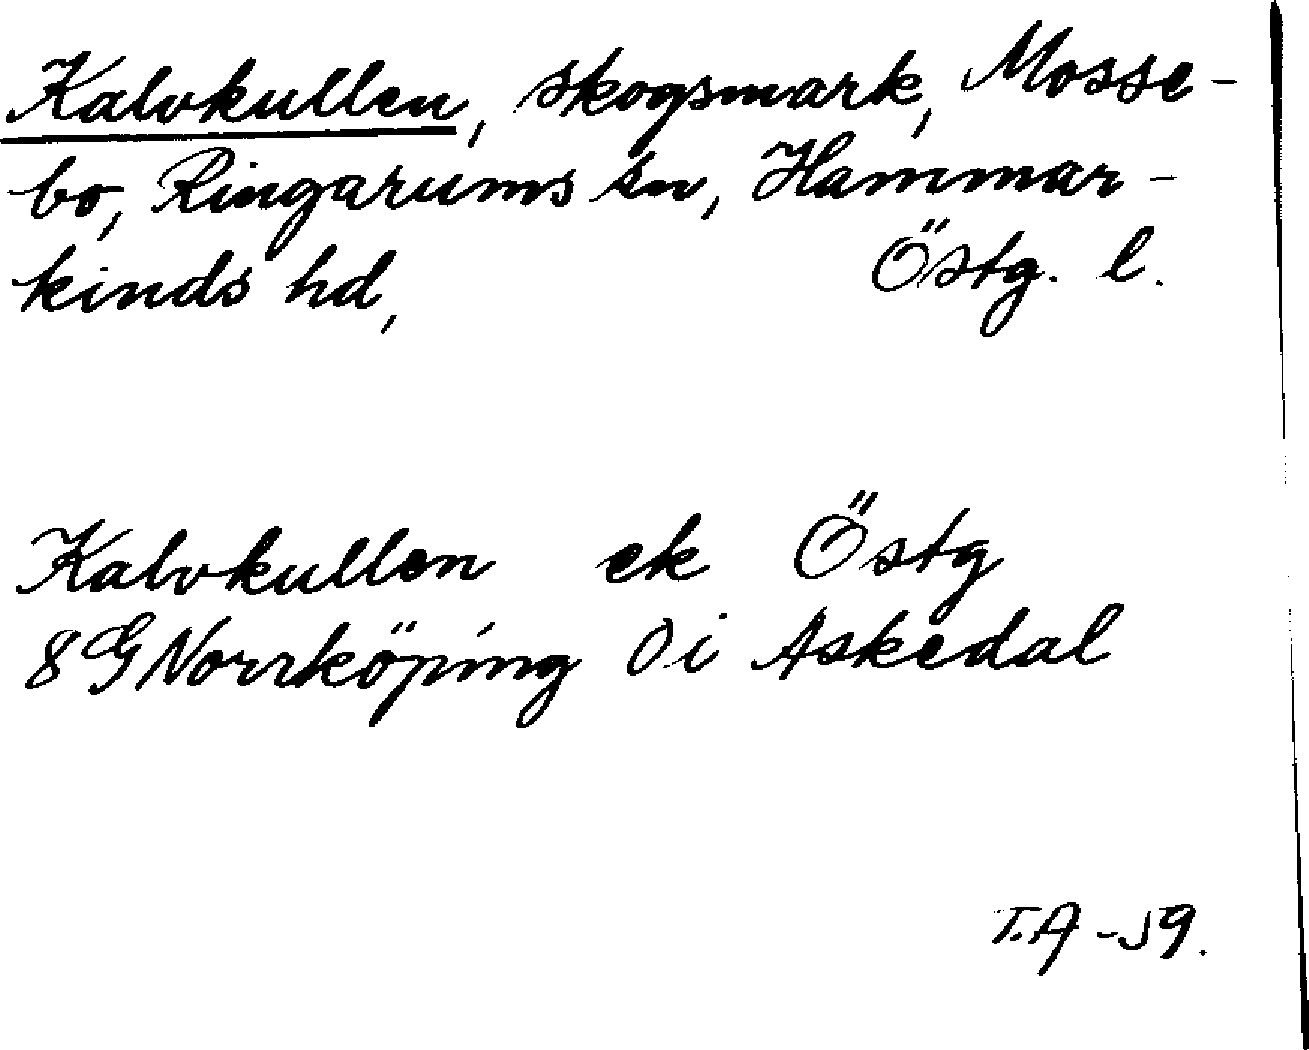 Kalvkullen, skogsmark, Mosse-
bo, Ringarums sn, Hammar-
kinds hd, Östg. l.
Kalvkullen ek Östg
8 G Norrköping 0 i Askedal
T.A -59.